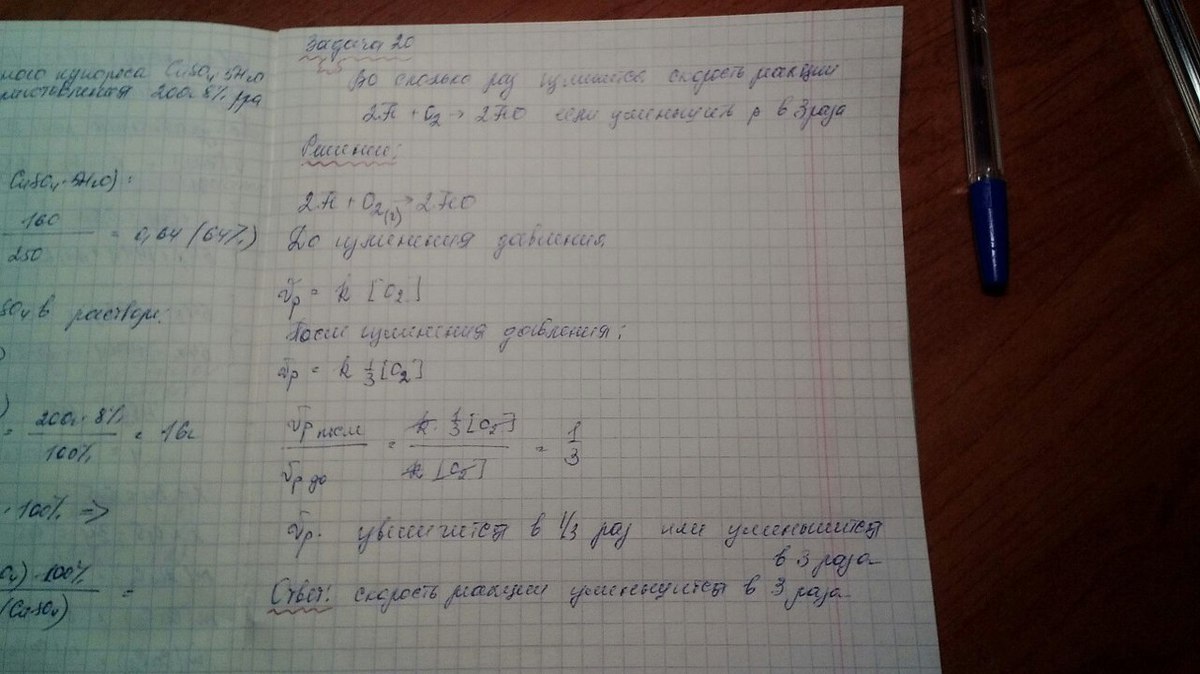 ного купороса CuSO₄·5H₂O
200г 8% р-ра
CuSO₄·5H₂O):
160
250
= 0,64 (64%)
SO₄ в растворе:
= 200г·8%
100%
= 16г
·100% =>
)·100%
(CuSO₄)
=
Задача 20
Во сколько раз изменится скорость реакции
2Fe + O₂ → 2FeO если уменьшить p в 3 раза
Решение:
2Fe + O₂(г) → 2FeO
До изменения давления
Vp = k [O₂]
После изменения давления:
Vp = k ⅓[O₂]
Vp после
Vp до
= k · ⅓[O₂]
k [O₂]
= 1
3
Vp. увеличится в 1/3 раз или уменьшится
в 3 раза
Ответ: скорость реакции уменьшится в 3 раза